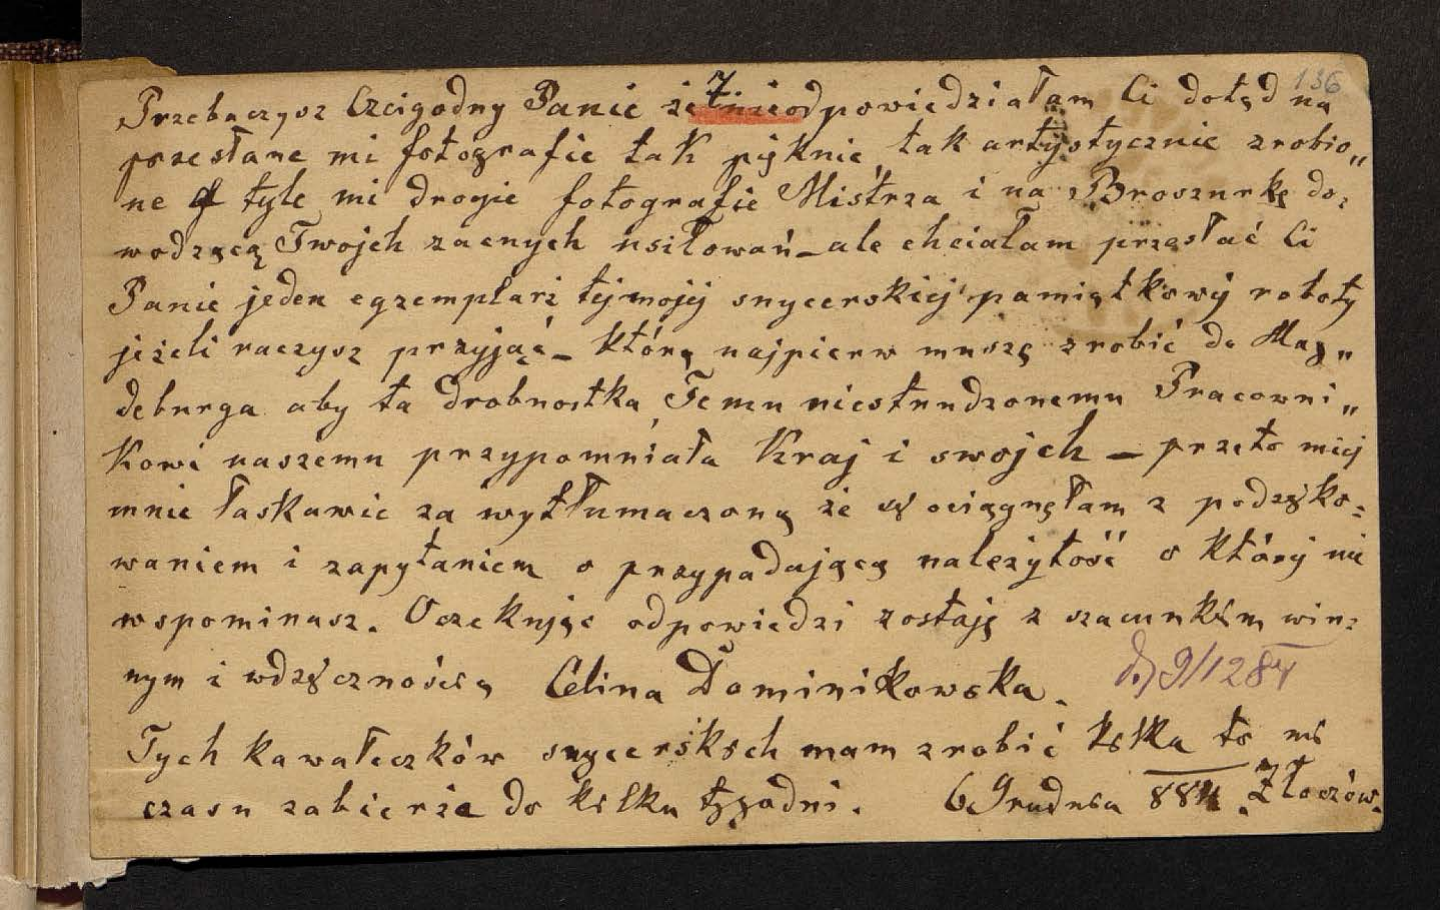 136
7.
Przebaczysz Czcigodny Panie że nieodpowiedziałam Ci dotąd na
przesłane mi fotografie tak pięknie, tak artystycznie zrobio„
ne tyle mi drogie fotografie Mistrza i na Broszurkę do,
wodzącą Twojch zacnych usiłowań – ale chciałam przesłać Ci
Panie jeden egzemplarz tej mojej snycerskiej pamiątkowej roboty
jeżeli raczysz przyjąć – którą najpierw muszę zrobić do Mag„
deburga aby ta drobnostka Temu niestrudzonemu Pracowni„
kowi naszemu przypomniała Kraj i swojch – przeto miej
mnie łaskawie za wytłumaczoną że się ociągnęłam z podzięko=
waniem i zapytaniem o przypadającą należytość o której nie
wspominasz. Oczekując odpowiedzi zostaję z szacunkiem win=
nym i wdzięcznością Celina Dominikowska.
9/12 84
Tych kawałeczków snycerskich mam zrobić kilka to mi
czasu zabierze do kilku tygodni. 6 Grudnia 884. Złoczów.